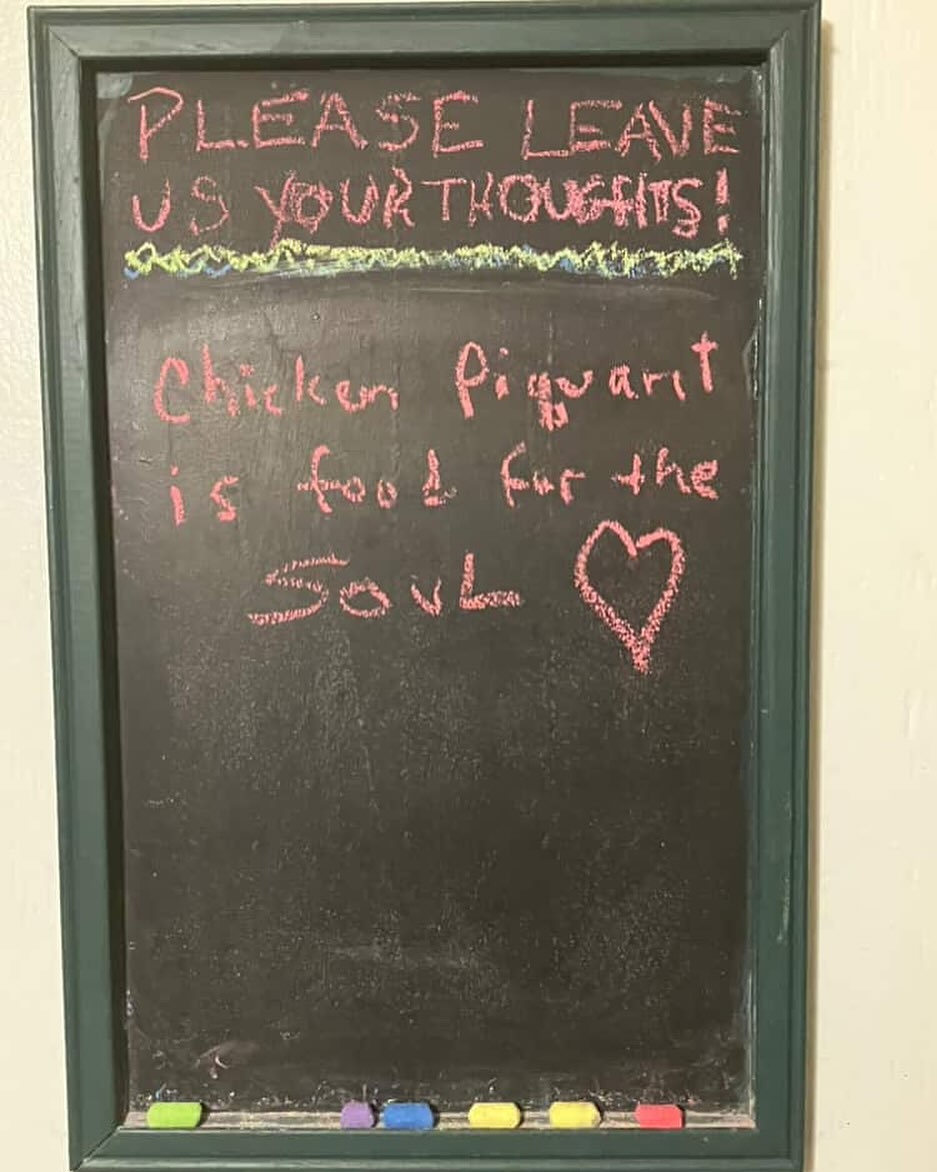 PLEASE LEAVE
US YOUR THOUGHTS!
Chicken Piquant
is food for the
SOUL